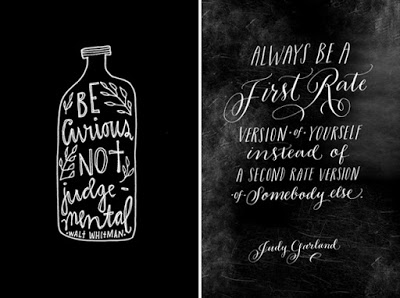 BE
Curious
NOT
judge-
mental
-WALT WHITMAN-
ALWAYS BE A
First Rate
VERSION-of-YOURSELF
instead of
A SECOND RATE VERSION
-of-Somebody else.
Judy Garland